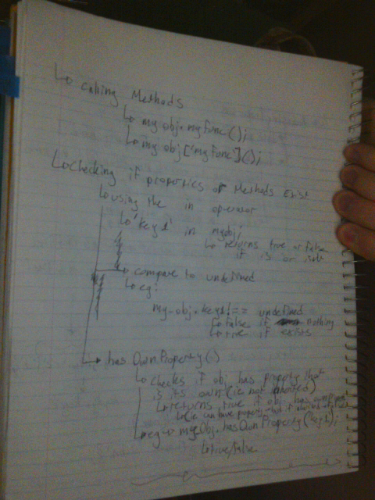 ↳ calling Methods
↳ myobj.myFunc();
↳ myobj['myFunc']();
↳ checking if properties or Methods Exist
↳ using the in operator
↳ 'key1' in myobj;
↳ returns true or False
if it is or not
↳ compare to undefined
↳ eg:
my-obj.key1 !== undefined
↳ false if nothing
↳ true if exists
↳ hasOwnProperty()
↳ checks if obj has property that
is its own (ie not inherited)
↳ returns true if obj has
↳ eg → myObj.hasOwnProperty('key1');
↳ true/false